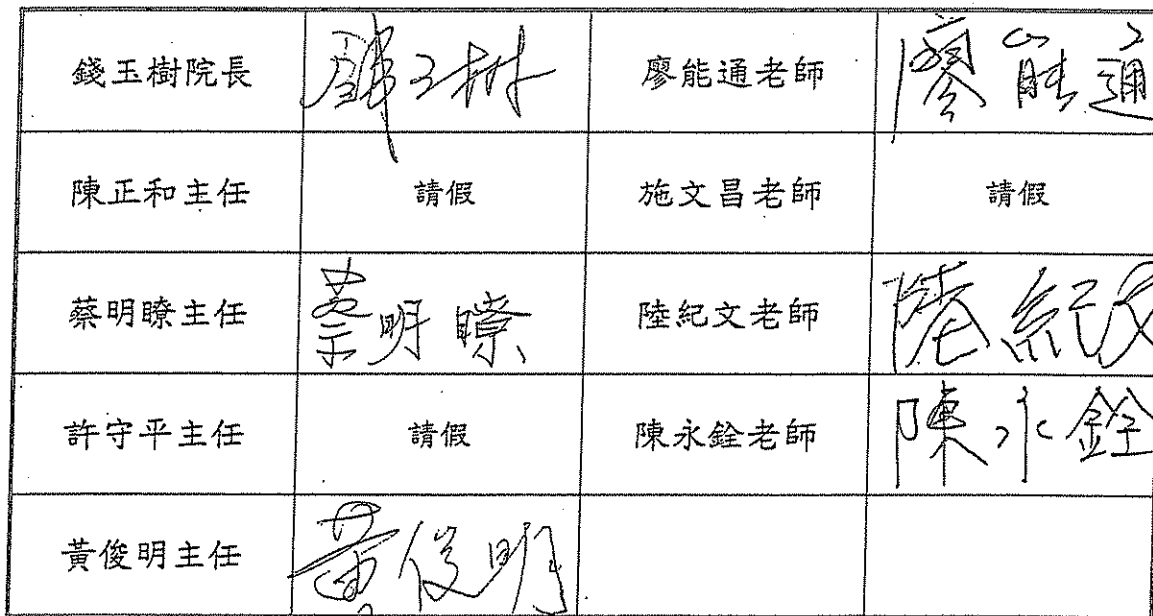 錢玉樹院長 錢玉樹 廖能通老師 廖能通
陳正和主任 請假 施文昌老師 請假
蔡明瞭主任 蔡明瞭 陸紀文老師 陸紀文
許守平主任 請假 陳永銓老師 陳永銓
黃俊明主任 黃俊明